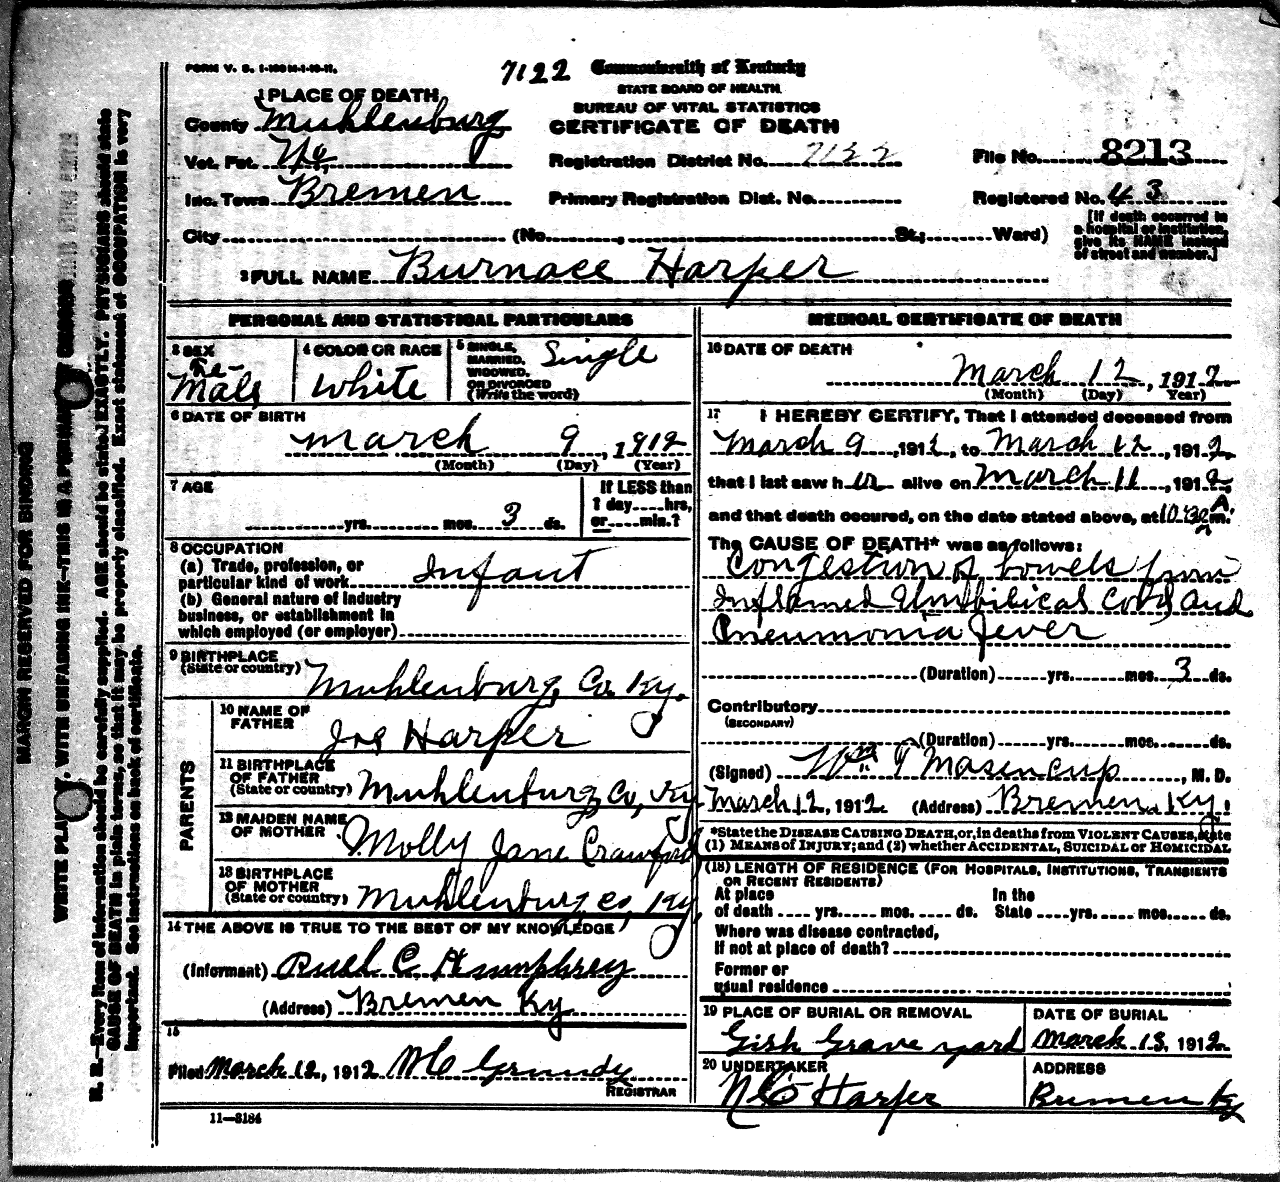 FORM V. S. 1-100 M-1-10-11.
7122 Commonwealth of Kentucky
STATE BOARD OF HEALTH
BUREAU OF VITAL STATISTICS
CERTIFICATE OF DEATH
1 PLACE OF DEATH
County Muhlenburg
Vot. Pct. No.
Inc. Town Bremen
Registration District No. 7122
File No. 8213
Primary Registration Dist. No.
Registered No. 43
[If death occurred in a hospital or institution, give its NAME instead of street and number.]
City (No. , St.; Ward)
2 FULL NAME Burnace Harper
PERSONAL AND STATISTICAL PARTICULARS
3 SEX
Fe-
Male
4 COLOR OR RACE
White
5 SINGLE, MARRIED, WIDOWED, OR DIVORCED (Write the word)
Single
6 DATE OF BIRTH
March 9, 1912
(Month) (Day) (Year)
7 AGE
yrs. mos. 3 ds.
If LESS than 1 day....hrs. or....min.?
8 OCCUPATION
(a) Trade, profession, or particular kind of work Infant
(b) General nature of industry business, or establishment in which employed (or employer)
9 BIRTHPLACE
(State or country) Muhlenburg Co. Ky.
PARENTS
10 NAME OF FATHER Joe Harper
11 BIRTHPLACE OF FATHER (State or country) Muhlenburg Co, Ky
12 MAIDEN NAME OF MOTHER Molly Jane Crawford
13 BIRTHPLACE OF MOTHER (State or country) Muhlenburg co, Ky,
14 THE ABOVE IS TRUE TO THE BEST OF MY KNOWLEDGE
(Informant) C Humphrey
(Address) Bremen Ky
15
Filed March 12, 1912 Grundy
REGISTRAR
11-3184
MEDICAL CERTIFICATE OF DEATH
16 DATE OF DEATH
March 12, 1912
(Month) (Day) Year)
17 I HEREBY CERTIFY, That I attended deceased from
March 9, 1912, to March 12, 1912,
that I last saw h er alive on March 11, 1912,
and that death occured, on the date stated above, at 10:30 A m.
The CAUSE OF DEATH* was as follows:
Congestion of bowels from
Inflamed Umbilical Cord and
Pneumonia fever
(Duration) yrs. mos. 3 ds.
Contributory
(SECONDARY)
(Duration) yrs. mos. ds.
(Signed) Wm T Masencup, M. D.
March 12, 1912 (Address) Bremen Ky.
*State the DISEASE CAUSING DEATH, or, in deaths from VIOLENT CAUSES, state
(1) MEANS of INJURY; and (2) whether ACCIDENTAL, SUICIDAL or HOMICIDAL
(18) LENGTH OF RESIDENCE (FOR HOSPITALS, INSTITUTIONS, TRANSIENTS
OR RECENT RESIDENTS)
At place of death .... yrs. .... mos. .... ds. In the State .... yrs. .... mos. .... ds.
Where was disease contracted,
If not at place of death?
Former or
usual residence
19 PLACE OF BURIAL OR REMOVAL
Gish Grave yard
DATE OF BURIAL
March 13, 1912
20 UNDERTAKER
Harper
ADDRESS
Bremen Ky
MARGIN RESERVED FOR BINDING
WRITE PLAINLY, WITH UNFADING INK—THIS IS A PERMANENT RECORD
N. B.—Every item of information should be carefully supplied. AGE should be stated EXACTLY. PHYSICIANS should state
CAUSE OF DEATH in plain terms, so that it may be properly classified. Exact statement of OCCUPATION is very
important. See instructions on back of certificate.